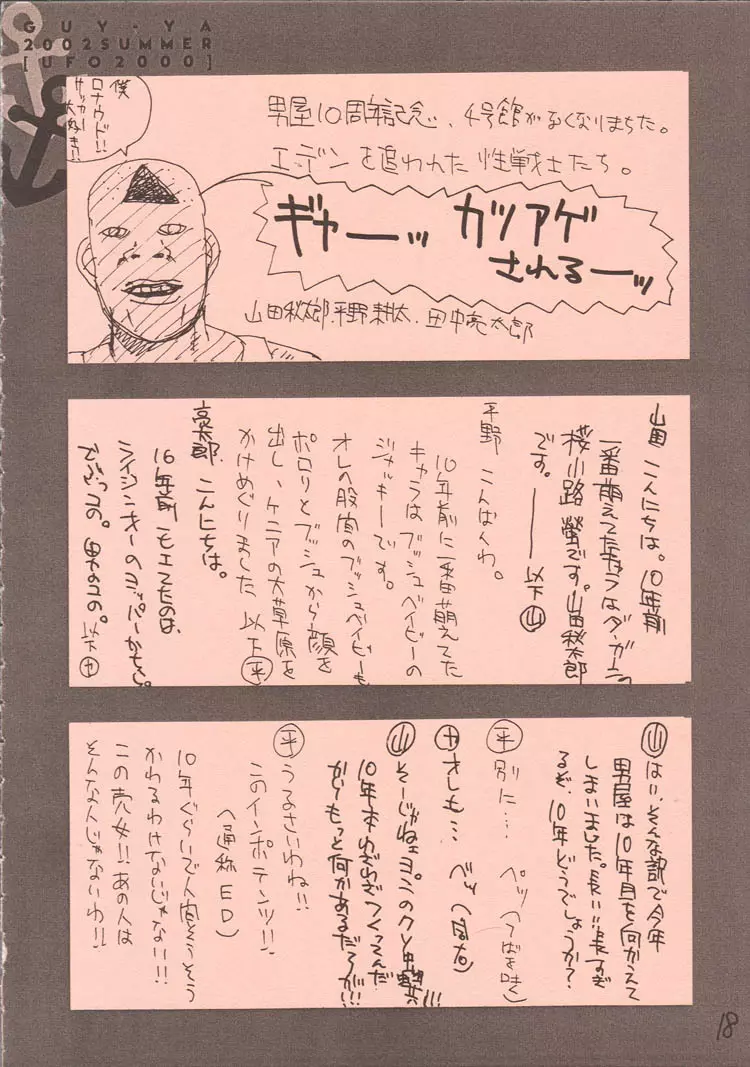 GUY-YA
2002SUMMER
[UFO2000]
僕
ロナウド!!
サッカー
大好き!!
男屋10周年記念、4号館がなくなりまちた。
エデンを追われた性戦士たち。
ギャーッ カツアゲ
されるーッ
山田秋太郎.平野耕太.田中亮太郎
山田 こんにちは。10年前
一番萌えてたキャラはダ・ガーンの
桜小路螢です。山田秋太郎
です。――以下山
平野 こんばくわ。
10年前に一番萌えてた
キャラはブッシュベイビーの
ジャッキーです。
オレの股間のブッシュベイビーも
ポロリとブッシュから顔を
出し、ケニアの大草原を
かけめぐりました 以下平
亮太郎 こんにちは。
10年前モエてたのは、
ライジンオーの
男のコの。以下中
山 はい、そんな訳で今年
男屋は10年目を向かえて
しまいました。長い!!長すぎ
るぞ、10年どうでしょうか?
平 別に… ペッ(つばを吐く)
中 オレも… ペッ
山 そーじゃねェ
10年本わざわざつくってんだ
からもっと何かあるだろが!!!
平 うるさいわね!!
このインポテンツ!!
(通称ED)
10年ぐらいで人間そうそう
かわるわけないじゃない!!
この売女!!あの人は
そんな人じゃないわ!!
18